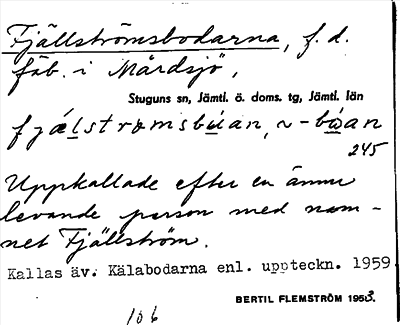 Fjällströmsbodarna, f. d.
fäb. i Mårdsjö,
Stuguns sn, Jämtl. ö. doms. tg, Jämtl. län
245
Uppkallade efter en ännu
levande person med nam-
net Fjällström.
Kallas äv. Kälabodarna enl. uppteckn. 1959
BERTIL FLEMSTRÖM 1953.
106